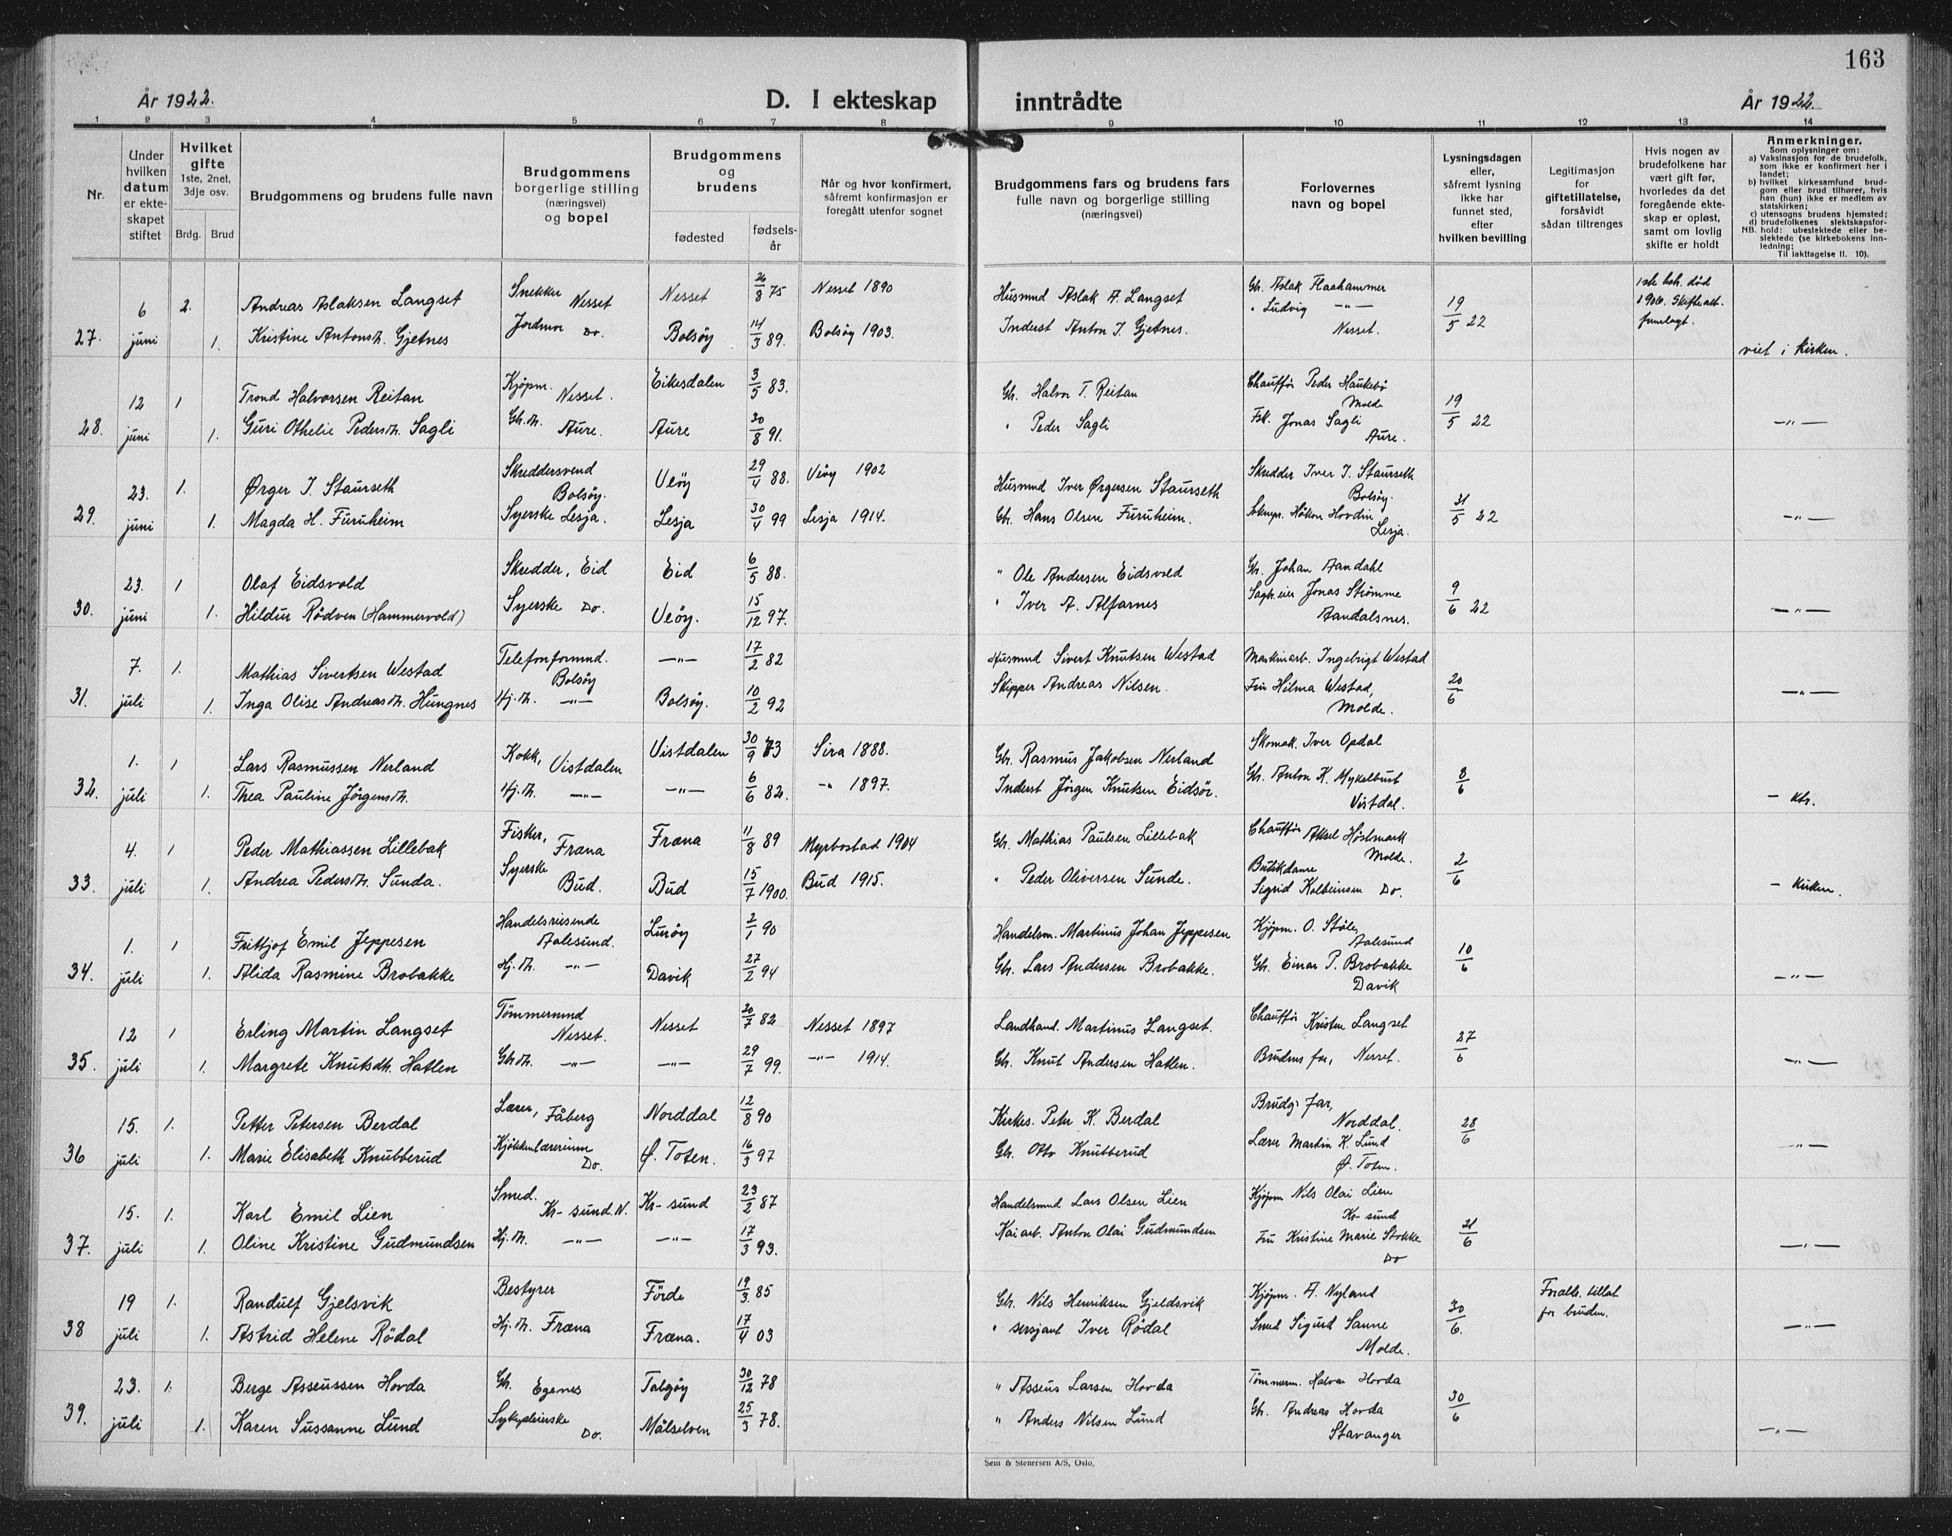 163
År 1922.
D. I ekteskap inntrådte
År 1922.
1 2 3 4 5 6 7 8 9 10 11 12 13 14
Nr.
Under hvilken datum er ekteskapet stiftet
Hvilket gifte 1ste, 2net, 3dje osv.
Brdg. Brud
Brudgommens og brudens fulle navn
Brudgommens borgerlige stilling (næringsvei) og bopel
Brudgommens og brudens
fødested
fødselsår
Når og hvor konfirmert, såfremt konfirmasjon er foregått utenfor sognet
Brudgommens fars og brudens fars fulle navn og borgerlige stilling (næringsvei)
Forlovernes navn og bopel
Lysningsdagen eller, såfremt lysning ikke har funnet sted, efter hvilken bevilling
Legitimasjon for giftetillatelse, forsåvidt sådan tiltrenges
Hvis nogen av brudefolkene har vært gift før, hvorledes da det foregående ekteskap er opløst, samt om lovlig skifte er holdt
Anmerkninger.
Som oplysninger om:
a) Vaksinasjon for de brudefolk, som ikke er konfirmert her i landet;
b) hvilket kirkesamfund brudgom eller brud tilhører, hvis han (hun) ikke er medlem av statskirken;
c) utensogns brudens hjemsted;
d) brudefolkenes slektskapsforhold: ubeslektede eller beslektede (se kirkebokens innledning;
NB.
Til iakttagelse ll. 10).
27. 6 juni 2. Andreas Aslaksen Langset Snekker Nesset Nesset 26/8 75 Nesset 1890 Husmnd Aslak A. Langset Gbr. Aslak Flaahammer 19/5 22 1ste hst. død 1906. Skifteatt.
1. Kristine Antonsdt. Gjetnes Jordmor Do. Bolsøy 14/3 89. Bolsøy 1903. Inderst Anton I. Gjetnes. " Ludvig —"— Nesset. viet i kirken.
28. 12 juni 1 Trond Halvorsen Reitan Kjøpm. Nesset. Eikesdalen 3/5 83. Gbr. Halvor T. Reitan Chauffør Peder Haukebø Molde 19/5 22
1. Guri Othelie Pedersdt. Sagli Gbr.dt. Aure. Aure 30/8 91. " Peder Sagli Fsk. Jonas Sagli Aure. —"—
29. 23. juni 1. Ørger I. Staurseth Skreddersvend Bolsøy. Veøy 29/4 88. Veøy 1902 Husmnd Iver Ørgersen Staurseth Skredder Iver I. Staurseth Bolsøy. 31/5 22
1. Magda H. Furuheim Syerske Lesja. Lesja 30/4 99 Lesja 1914. Gbr. Hans Olsen Furuheim. Håkon Hovdin Lesja. —"—
30. 23. juni 1 Olaf Eidsvold Skredder, Eid Eid 6/5 88. " Ole Andersen Eidsvold Gbr. Johan Aandahl 9/6 22
1. Hildur Rødven (Hammervold) Syerske Do. Veøy. 15/12 97. " Iver A. Alfarnes Sagbr.eier Jonas Strømme Aandalsnes. —"—
31. 7. juli 1. Mathias Sivertsen Westad Telefonformnd. Bolsøy —"— 17/2 82 Husmnd Sivert Knutsen Westad Maskinarb. Ingebrigt Westad 20/6
1. Inga Olise Andreasdt. Hungnes Hj.dt. —"— Bolsøy. 10/2 92 Skipper Andreas Nilsen. Fru Hilma Westad, Molde. —"—
32. 1. juli 1 Lars Rasmussen Nerland Kokk, Vistdalen Vistdalen 30/9 73 Sira 1888. Gbr. Rasmus Jakobsen Nerland Skomak. Iver Opdal 8/6
1. Thea Pauline Jørgensdt. Hj.dt. —"— —"— 6/6 82. —"— 1897. Inderst Jørgen Knutsen Eidsør. Gbr. Anton K. Myklebust Vistdal. — ktr.
33. 4. juli 1 Peder Mathiassen Lillebak Fisker, Fræna Fræna 11/8 89 Myrbostad 1904 Gbr. Mathias Paulsen Lillebak Chauffør Aksel Høstmark Molde. 2/6
1. Andrea Pedersdt. Sunda. Syerske Bud. Bud 15/7 1900. Bud 1915. " Peder Oliversen Sunde. Butikdame Sigrid Kolbeinsen Do. — kirken.
34. 1. juli 1 Frittjof Emil Jeppesen Handelsreisende Aalesund. Lurøy 2/1 90 Handelsm. Martinus Johan Jeppesen Kjøpm. O. Støle, Aalesund 10/6
1. Alida Rasmine Brobakke Hj.dt. —"— Davik 27/2 94 Gbr. Lars Andersen Brobakke. Gbr. Einar P. Brobakke Davik —"—
35. 12 juli 1 Erling Martin Langset Tømmermnd Nesset. Nesset 20/7 82 Nesset 1897 Landhand. Martinus Langset. Chauffør Kristen Langset 27/6
1. Margrete Knutsdt. Hatlen Gbrdt. —"— —"— 29/7 99. —"— 1914. Gbr. Knut Andersen Hatlen. Brudens far, Nesset. —"—
36 15. juli 1. Petter Petersen Berdal Lærer, Fåberg Norddal 12/8 90 Kirkes. Petr. K. Berdal Brudg. far, Norddal. 28/6
1. Marie Elisabeth Knubberud Kjøkkenlærerinne Do. Ø. Toten. 16/3 97 Gbr. Otto Knubberud Lærer Martin K. Lund Ø. Toten. —"—
37. 15. juli 1. Karl Emil Lien Smed. Kr-sund. N. Kr-sund 23/2 87 Handelsmnd Lars Olsen Lien Kjøpm Nils Olai Lien Kr-sund 21/6
1. Oline Kristine Gudmundsen Hj.dt. —"— —"— 17/3 93. Kaiarb. Anton Olai Gudmundsen Fru Kristine Marie Stokke Do —"—
38 19 juli 1. Randulf Gjelsvik Bestyrer Førde 19/3. 85 Gbr. Nils Henriksen Gjeldsvik Kjøpm. A. Nyland 30/6. Foreld. tillat for bruden.
1. Astrid Helene Rødal Hj.dt. Fræna Fræna. 17/4 03 " sersjant Iver Rødal Smed Sigurd Sanne Molde. —"—
39. 23. juli 1. Berge Asseussen Hovda Gbr. Egenes Talgøy 30/12 78 " Asseus Larsen Hovda Tømmerm. Halvor Hovda 30/6
1. Karen Sussanne Lund Sykepleierske Do. Målselven 25/3 78. " Anders Nilsen Lund Gbr. Andreas Hovda Stavanger —"—
Sem & Stenersen A/S, Oslo.